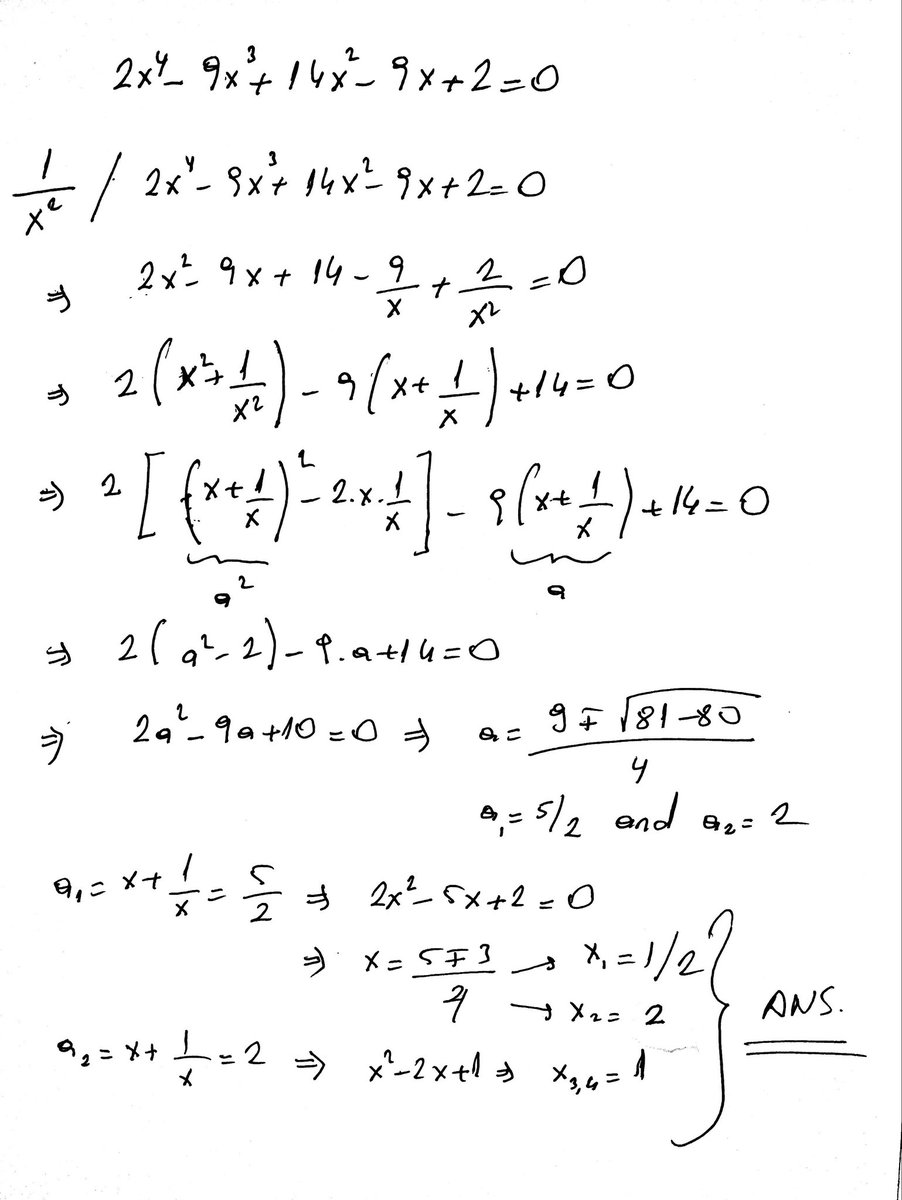 2x⁴ - 9x³ + 14x² - 9x + 2 = 0
1/x² / 2x⁴ - 9x³ + 14x² - 9x + 2 = 0
⇒ 2x² - 9x + 14 - 9/x + 2/x² = 0
⇒ 2(x² + 1/x²) - 9(x + 1/x) + 14 = 0
⇒ 2[(x + 1/x)² - 2.x.1/x] - 9(x + 1/x) + 14 = 0
a² a
⇒ 2(a² - 2) - 9.a + 14 = 0
⇒ 2a² - 9a + 10 = 0 ⇒ a = (9 ∓ √(81 - 80))/4
a₁ = 5/2 and a₂ = 2
a₁ = x + 1/x = 5/2 ⇒ 2x² - 5x + 2 = 0
⇒ x = (5 ∓ 3)/4 → x₁ = 1/2
→ x₂ = 2
ANS.
a₂ = x + 1/x = 2 ⇒ x² - 2x + 1 ⇒ x₃,₄ = 1